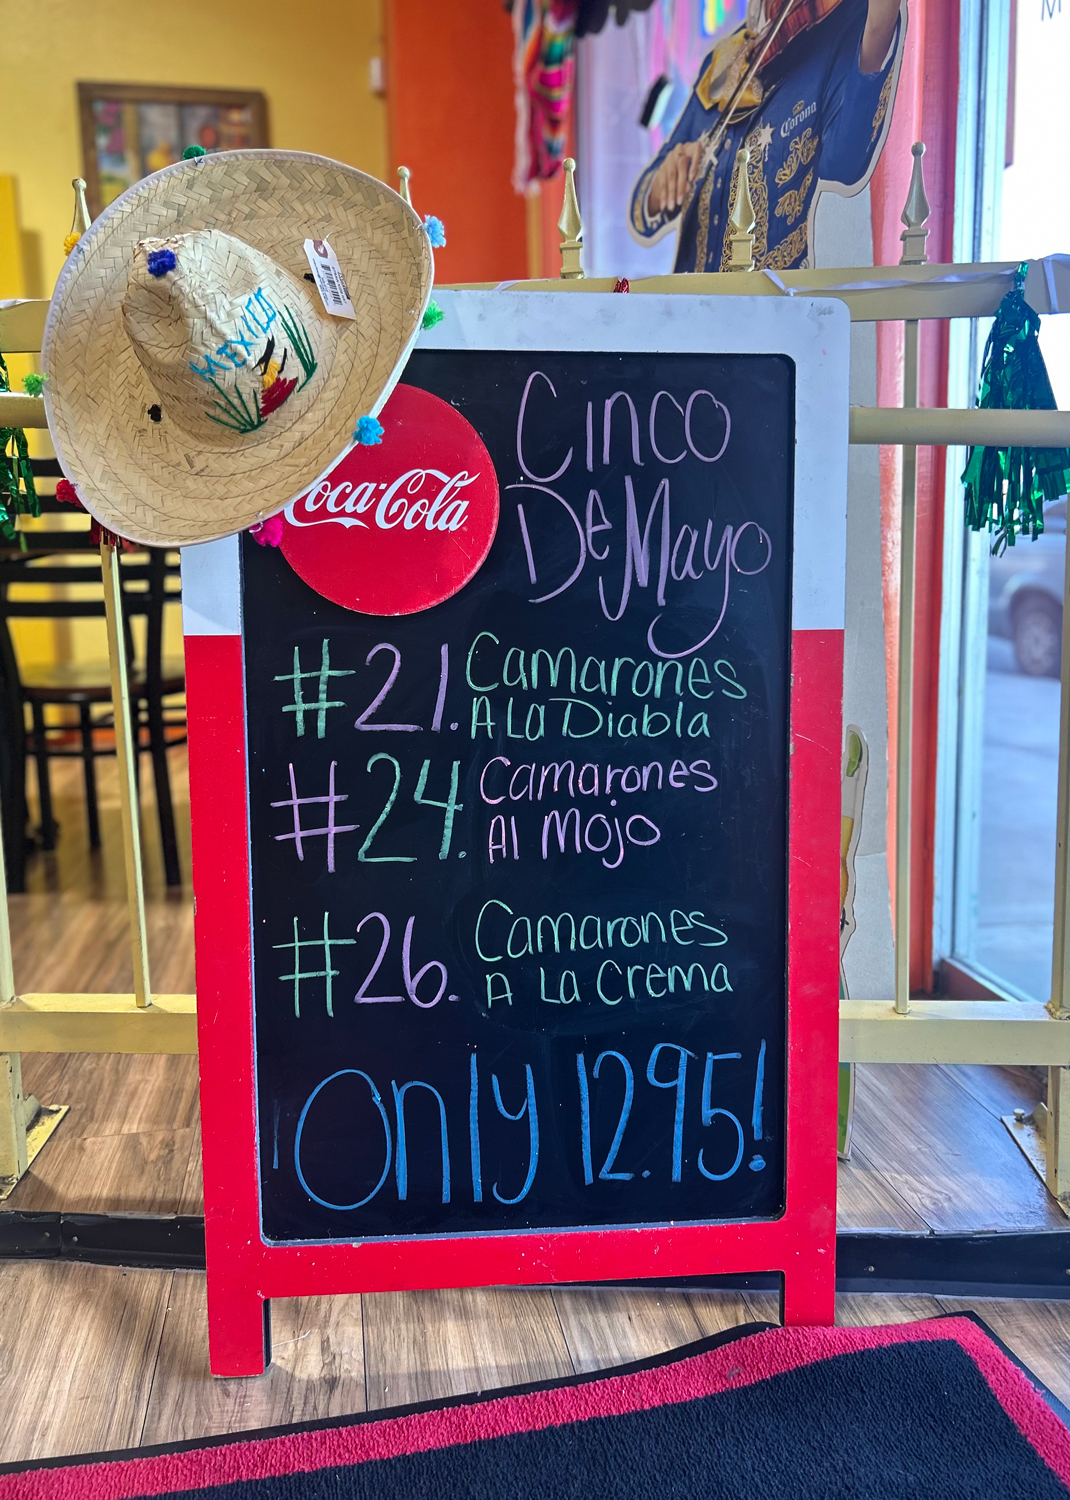 Corona
MEXICO
Coca-Cola
Cinco
De Mayo
#21. Camarones
A La Diabla
#24. Camarones
Al Mojo
#26. Camarones
A La Crema
Only 12.95!